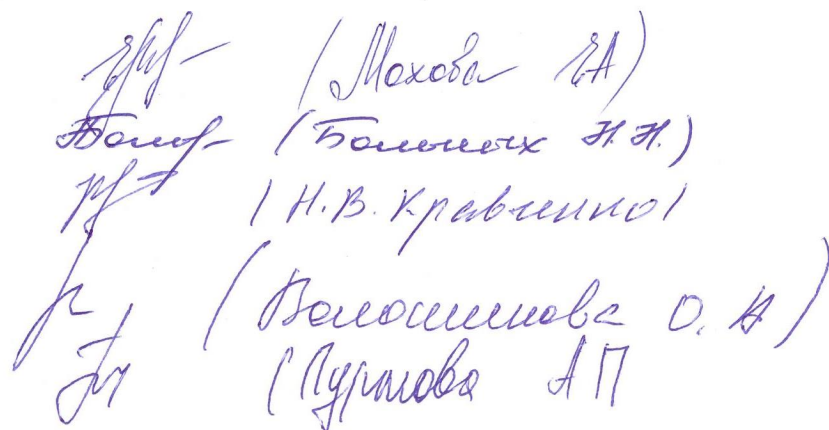 (Мохова ЕА)
(Больных Н.Н.)
/Н.В. Кравченко/
(Волошинова О.А)
(Пурылова АП